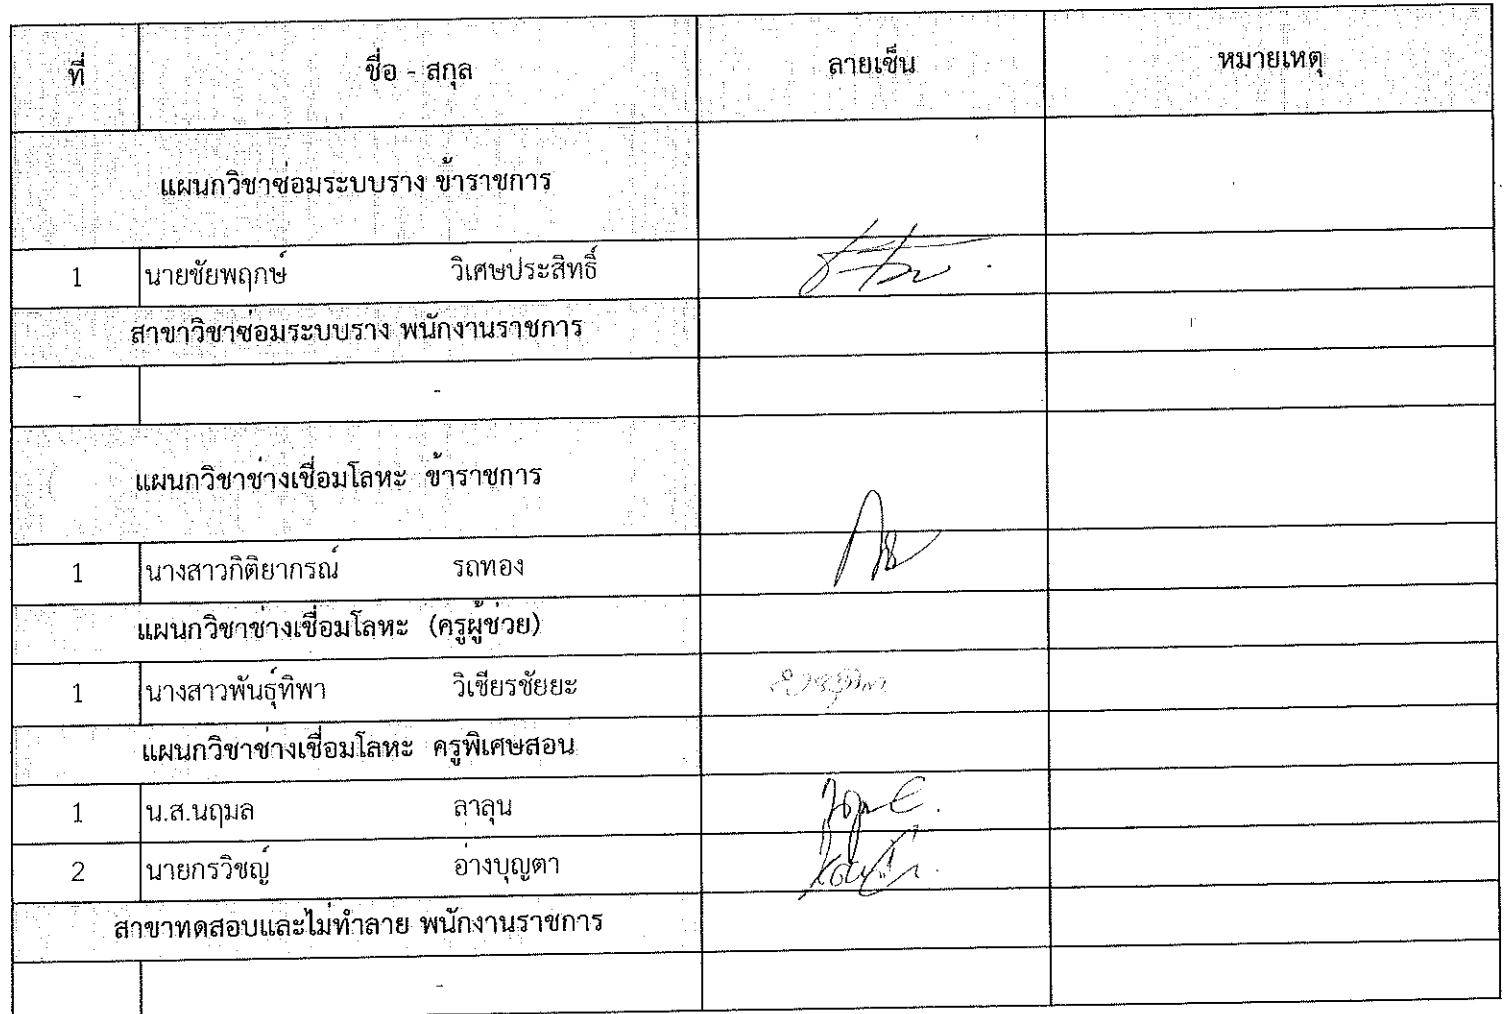 ที่ ชื่อ - สกุล ลายเซ็น หมายเหตุ
แผนกวิชาซ่อมระบบราง ข้าราชการ
1 นายชัยพฤกษ์ วิเศษประสิทธิ์
สาขาวิชาซ่อมระบบราง พนักงานราชการ
- -
แผนกวิชาช่างเชื่อมโลหะ ข้าราชการ
1 นางสาวกิติยากรณ์ รถทอง
แผนกวิชาช่างเชื่อมโลหะ (ครูผู้ช่วย)
1 นางสาวพันธุ์ทิพา วิเชียรชัยยะ
แผนกวิชาช่างเชื่อมโลหะ ครูพิเศษสอน
1 น.ส.นฤมล ลาลุน
2 นายกรวิชญ์ อ่างบุญตา
สาขาทดสอบและไม่ทำลาย พนักงานราชการ
-